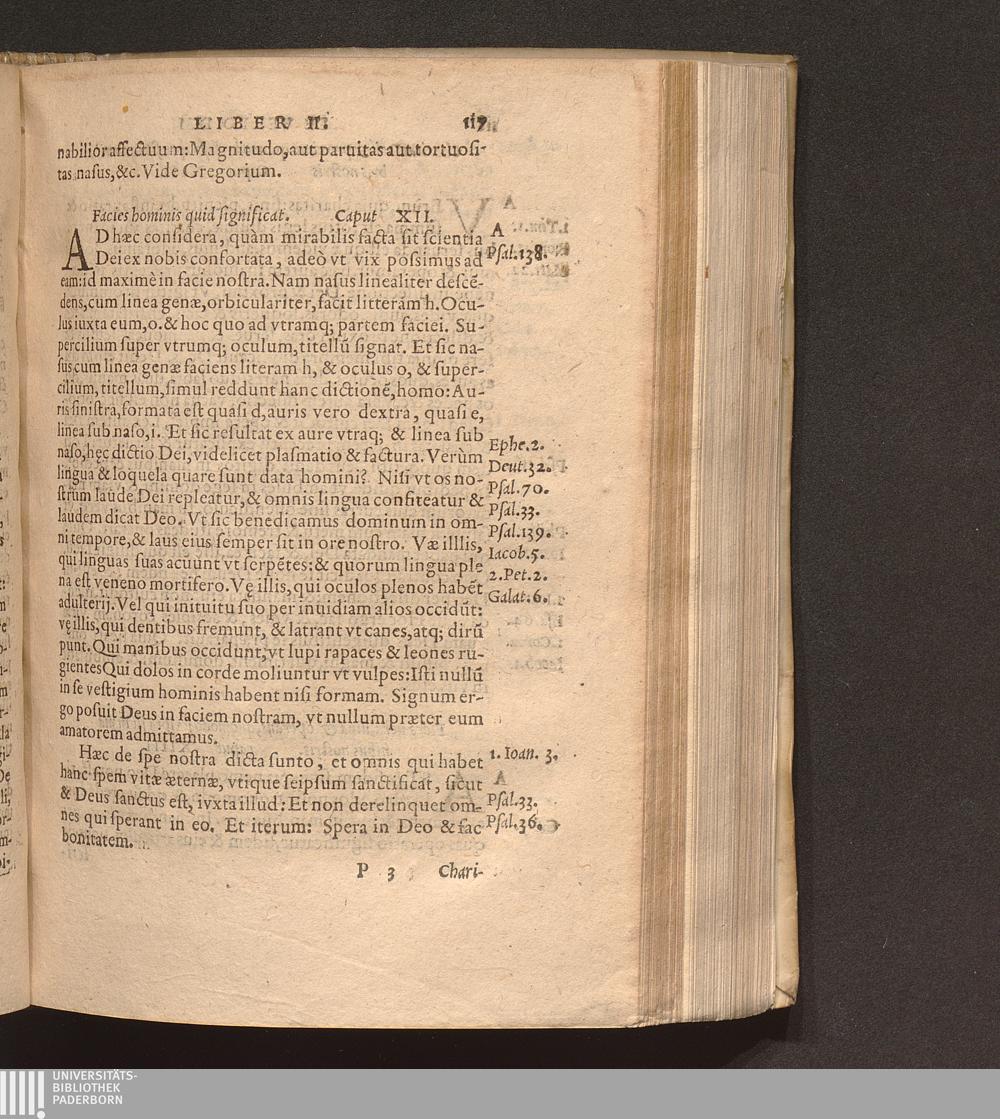 LIBER II. 117
nabilior affectuum: Magnitudo, aut paruitas aut tortuosi-
tas nasus, &c. Vide Gregorium.
Facies hominis quid significat. Caput XII.
AD hæc considera, quàm mirabilis facta sit scientia
A
Dei ex nobis confortata, adeò vt vix possimus ad
Psal.138.
eam: id maximè in facie nostra. Nam nasus linealiter descē-
dens, cum linea genæ, orbiculariter, facit litteram h. Ocu-
lus iuxta eum, o. & hoc quo ad vtramq; partem faciei. Su-
percilium super vtrumq; oculum, titellū signat. Et sic na-
sus cum linea genæ faciens literam h, & oculus o, & super-
cilium, titellum, simul reddunt hanc dictionē, homo: Au-
ris sinistra, formata est quasi d, auris vero dextra, quasi e,
linea sub naso, i. Et sic resultat ex aure vtraq; & linea sub
naso, hęc dictio Dei, videlicet plasmatio & factura. Verùm
Ephe.2.
lingua & loquela quare sunt data homini? Nisi vt os no-
Deut.32.
strum laude Dei repleatur, & omnis lingua confiteatur &
Psal.70.
laudem dicat Deo. Vt sic benedicamus dominum in om-
Psal.33.
ni tempore, & laus eius semper sit in ore nostro. Væ illlis,
Psal.139.
qui linguas suas acuunt vt serpētes: & quorum lingua ple
Iacob.5.
na est veneno mortifero. Vę illis, qui oculos plenos habēt
2.Pet.2.
adulterij. Vel qui inituitu suo per inuidiam alios occidūt:
Galat.6.
vę illis, qui dentibus fremunt, & latrant vt canes, atq; dirū
punt. Qui manibus occidunt, vt lupi rapaces & leones ru-
gientes Qui dolos in corde moliuntur vt vulpes: Isti nullū
in se vestigium hominis habent nisi formam. Signum er-
go posuit Deus in faciem nostram, vt nullum præter eum
amatorem admittamus.
Hæc de spe nostra dicta sunto, et omnis qui habet
1. Ioan. 3.
hanc spem vitæ æternæ, vtique seipsum sanctificat, sicut
A
& Deus sanctus est, iuxta illud: Et non derelinquet om-
Psal.33.
nes qui sperant in eo. Et iterum: Spera in Deo & fac
Psal.36.
bonitatem.
P 3 Chari-
UNIVERSITÄTS-
BIBLIOTHEK
PADERBORN